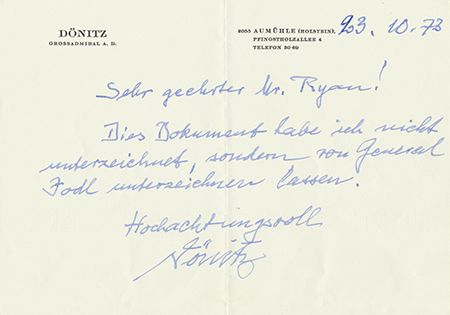 DÖNITZ
GROSSADMIRAL A. D.
2055 AUMÜHLE (HOLSTEIN),
PFINGSTHOLZALLEE 4
TELEFON 30 69
23. 10. 73
Sehr geehrter Mr. Ryan!
Dies Dokument habe ich nicht
unterzeichnet, sondern von General
Jodl unterzeichnen lassen.
Hochachtungsvoll
Dönitz